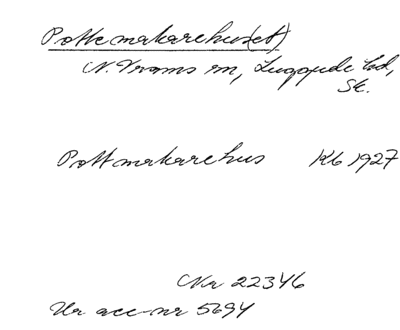 Pottemakarehus(et)
N. Vrams sn, Luggude hd,
Sk.
Pottmakarehus Kb 1927
Nr 22346
Ur acc-nr 5694